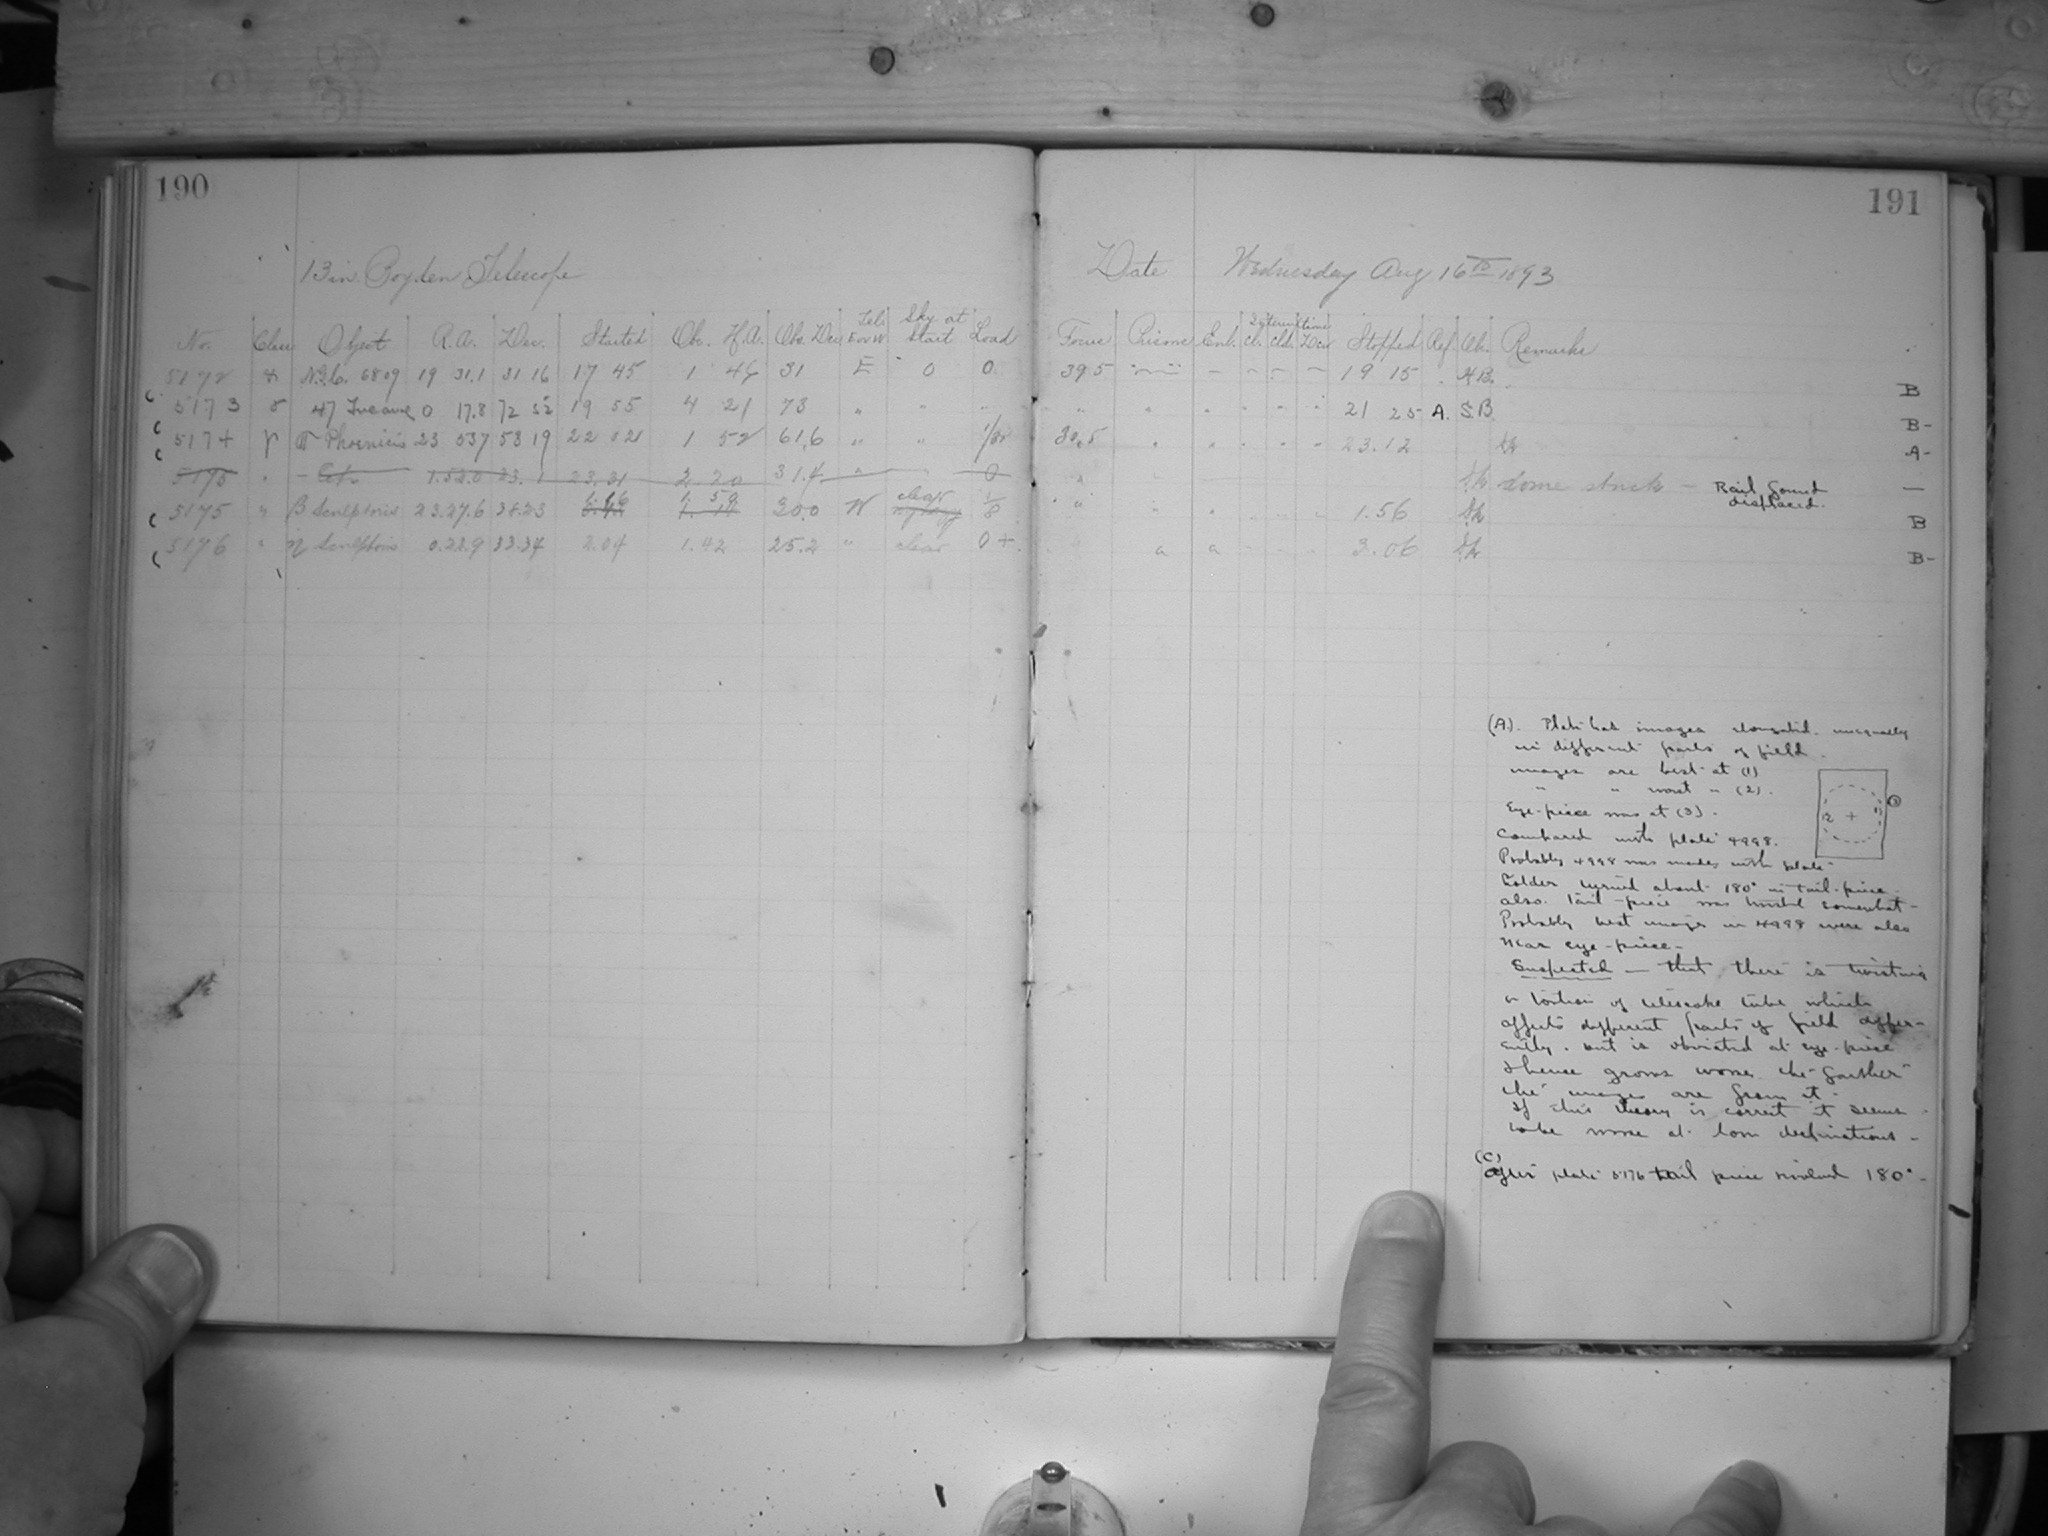 190
13 in. Boyden Telescope
No. Class Object R.A. Dec. Started Obs. H.A. Obs. Dec. Tel. E or W Sky at Start Load
5172 N.G.C. 6809 19 31.1 31 16 17 45 1 46 31 E 0 0
5173 γ 47 Tucanae 0 17.8 72 52 19 55 4 21 73 " " "
5174 γ Phoenicis 23 53.7 53 19 22 02 1 52 61.6 " "
5175 " 1.52.0 23.1 23.21 2 20 31.4 " " 0
5175 " β Sculptoris 23.27.6 38.23 1.16 1.59 30.0 W clear 1/8
5176 " η Sculptoris 0.22.9 33.34 2.04 1.42 25.2 " clear 0+
191
Date Wednesday Aug 16th 1893
Focus Prisms Enl. Stopped Ref. Ob. Remarks
39.5 19 15 B
" " 21 25 A. S.B. B-
30.5 23.12 A-
Dome stuck — Rail found displaced. —
" 1.56 B
3.06 B-
(A). Plate has images elongated unequally
in different parts of field.
images are best at (1)
" " worst " (2).
Eye-piece was at (3).
Compared with plate 4998.
Probably 4998 was made with plate
holder turned about 180° in tail-piece
also tail-piece was turned somewhat-
Probably best images in 4998 were also
near eye-piece-
Suspected — that there is twisting
or torsion of telescope tube which
affects different parts of field differ-
ently. but is obviated at eye-piece
& hence grows worse the farther
the images are from it.
If this theory is correct it seems
to be worse at low declinations.
(C)
After plate 5176 tail piece revolved 180°-